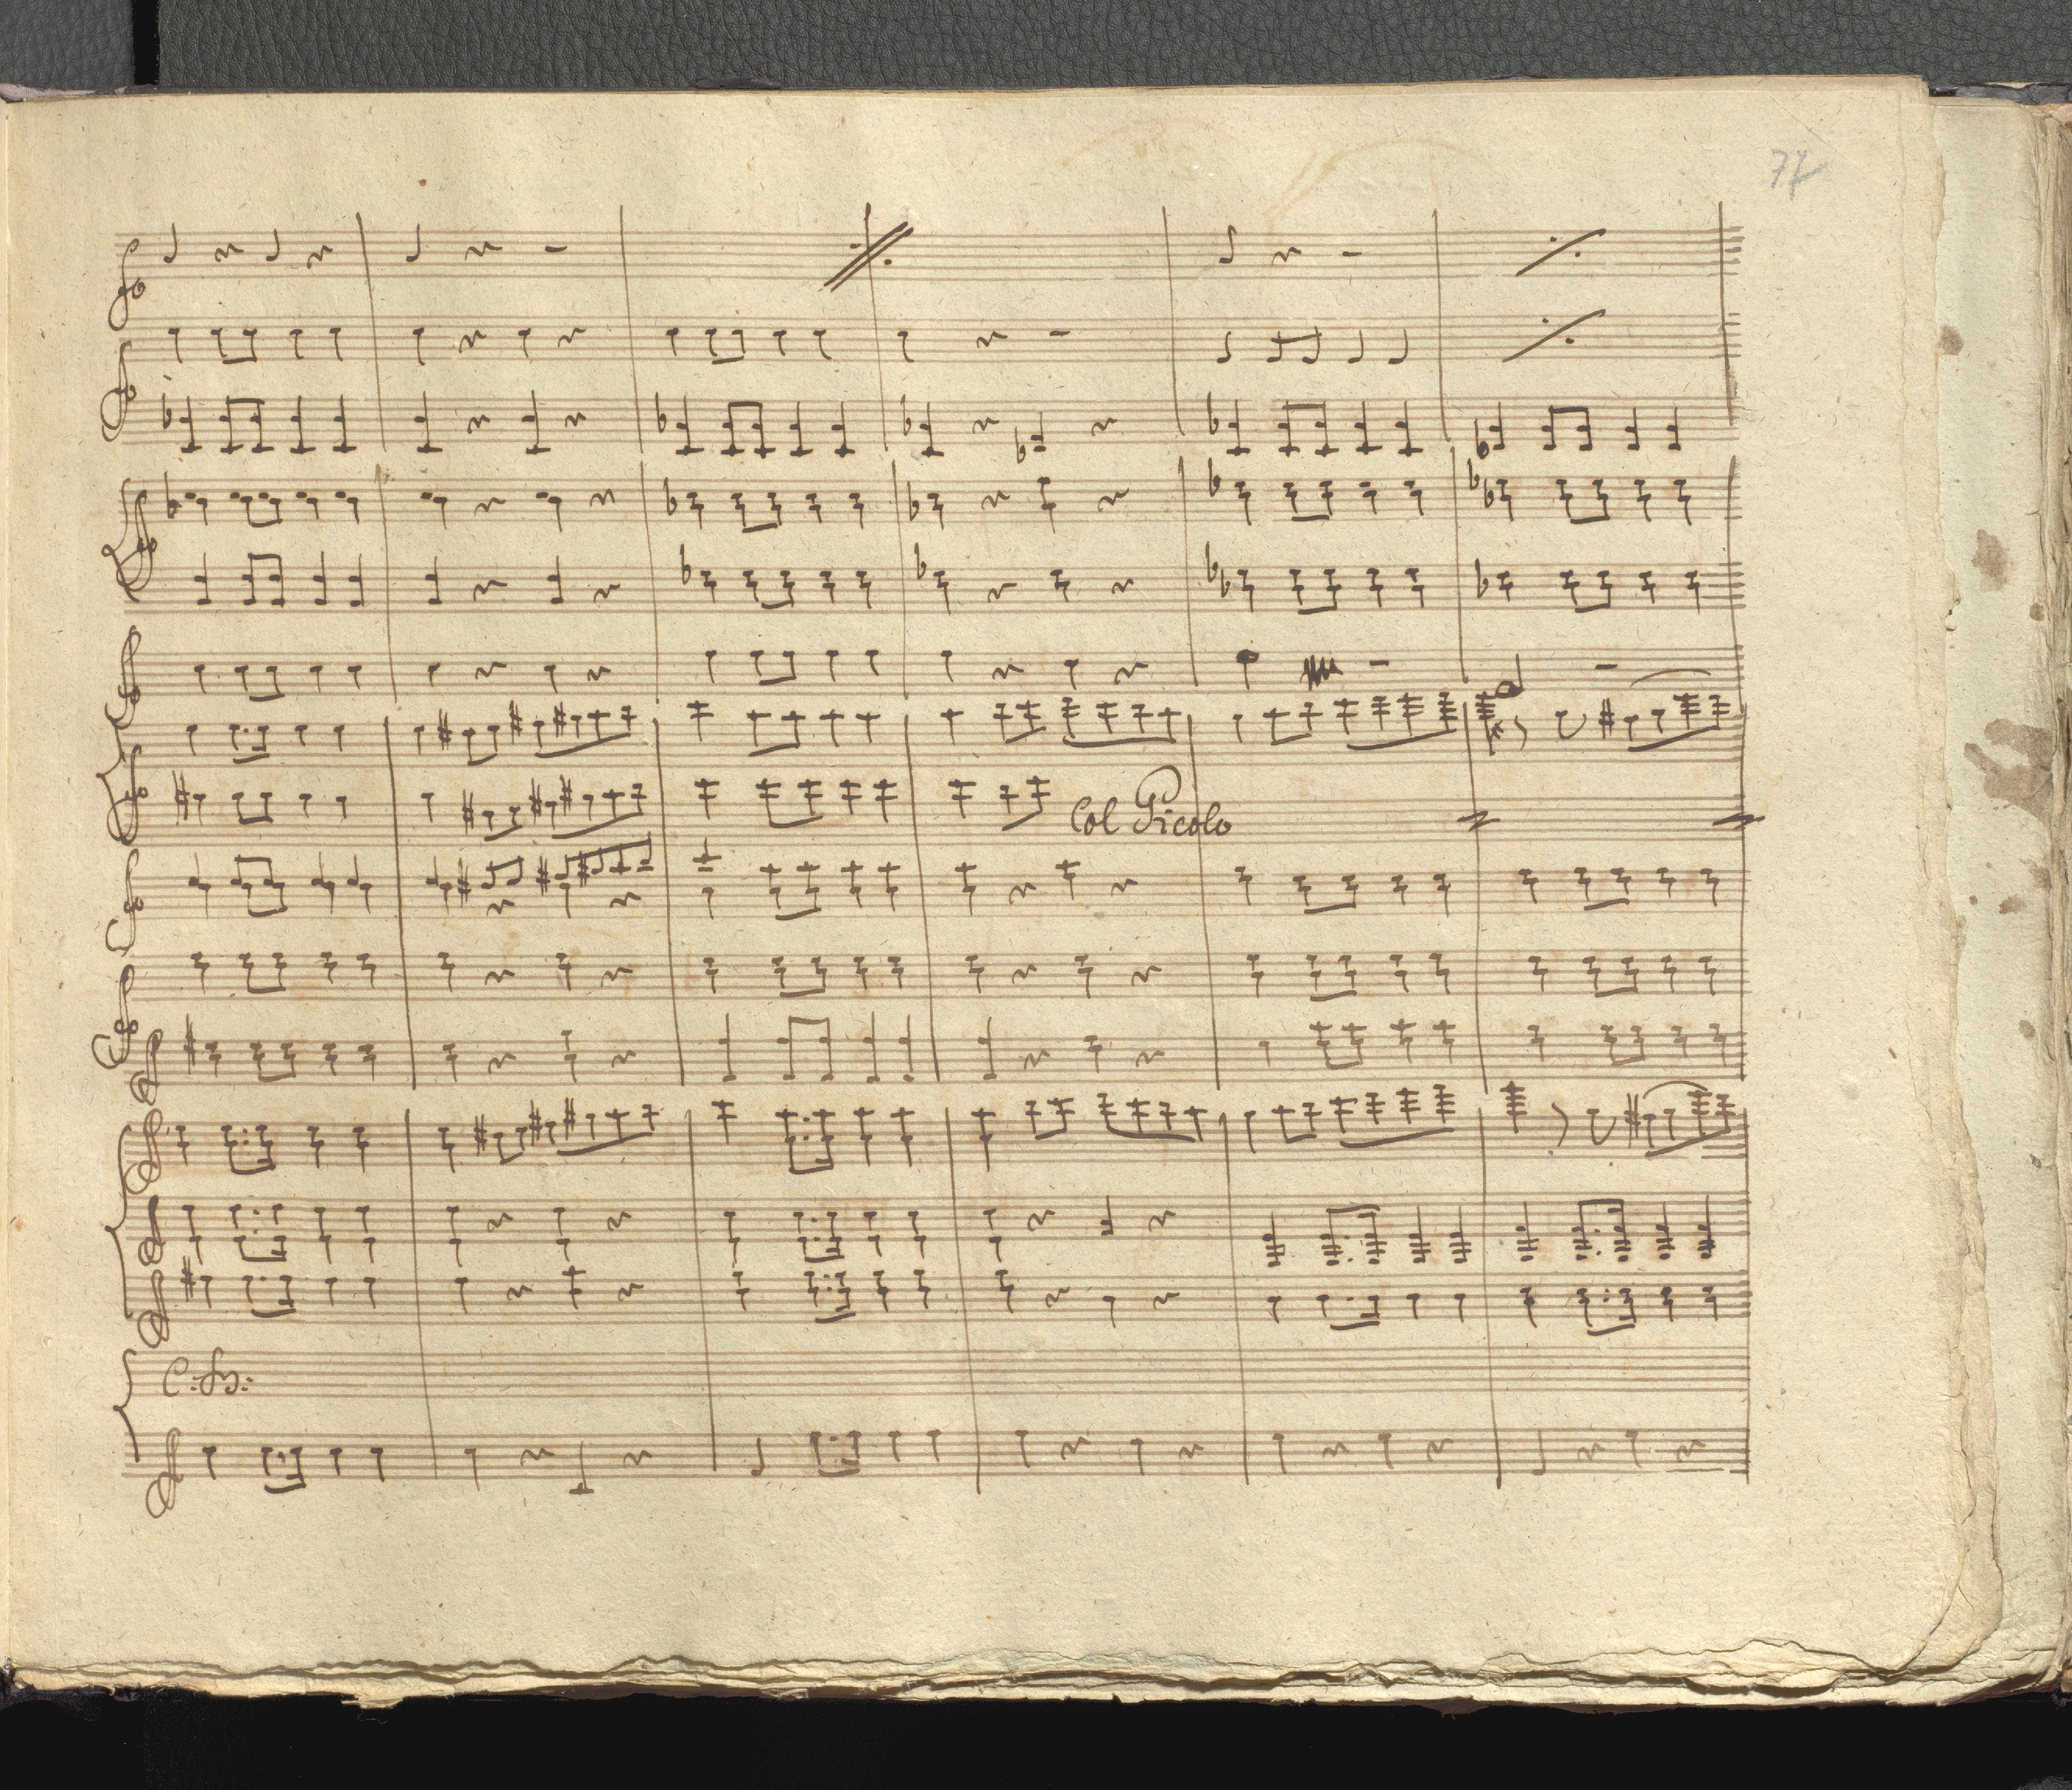 77
Col Picolo